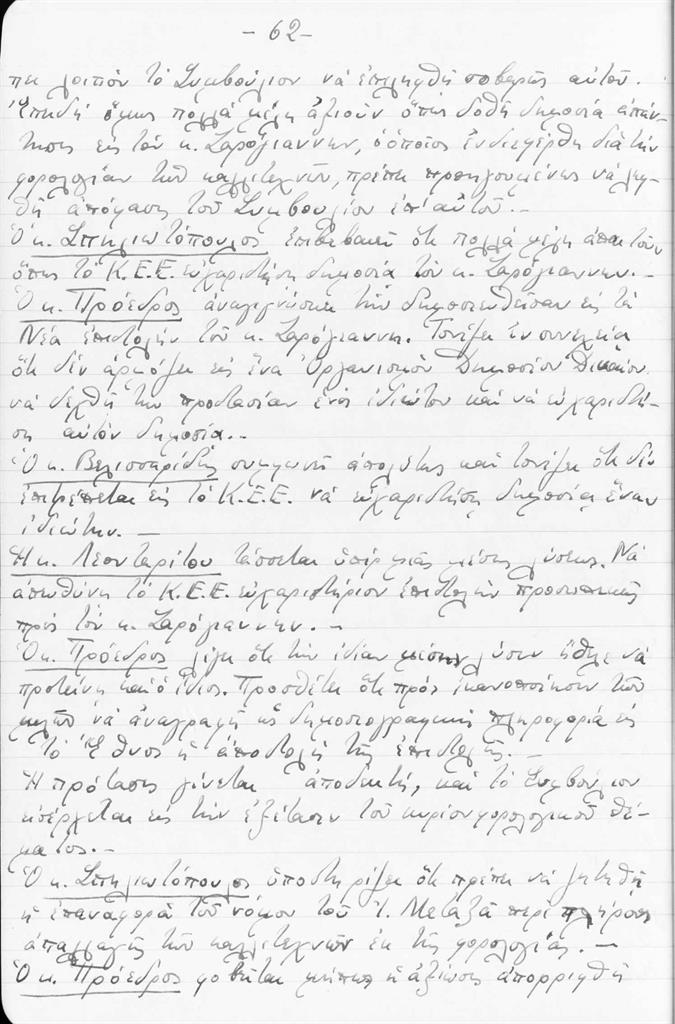 - 62 -
πει λοιπόν τό Συμβούλιον νά ἐπιληφθῇ σοβαρῶς αὐτοῦ.
Ἐπειδή ὅμως πολλά μέλη ἀξιοῦν ὅπως δοθῇ δημοσία ἀπάν-
τησις εἰς τόν κ. Σαρόγιαννην, ὁ ὁποῖος ἐνδιεφέρθη διά τήν
φορολογίαν τῶν καλλιτεχνῶν, πρέπει προηγουμένως νά λη-
φθῇ ἀπόφασις τοῦ Συμβουλίου ἐπ' αὐτοῦ. -
Ὁ κ. Σπηλιωτόπουλος ἐπιβεβαιοῖ ὅτι πολλά μέλη ἀπαιτοῦν
ὅπως τό Κ.Ε.Ε. εὐχαριστήσῃ δημοσίᾳ τόν κ. Σαρόγιαννην. -
Ὁ κ. Πρόεδρος ἀναγιγνώσκει τήν δημοσιευθεῖσαν εἰς τά
Νέα ἐπιστολήν τοῦ κ. Σαρόγιαννη. Τονίζει ἐν συνεχείᾳ
ὅτι δέν ἁρμόζει εἰς ἕνα Ὀργανισμόν Δημοσίου Δικαίου
νά δεχθῇ τήν προστασίαν ἑνός ἰδιώτου καί νά εὐχαριστή-
σῃ αὐτόν δημοσίᾳ. -
Ὁ κ. Βελισσαρίδης συμφωνεῖ ἀπολύτως καί τονίζει ὅτι δέν
ἐπιτρέπεται εἰς τό Κ.Ε.Ε. νά εὐχαριστήσῃ δημοσίᾳ ἕναν
ἰδιώτην. -
Ἡ κ. Λεονταρίτου τάσσεται ὑπέρ μιᾶς μέσης λύσεως. Νά
ἀπευθύνῃ τό Κ.Ε.Ε. εὐχαριστήριον ἐπιστολήν προσωπικῶς
πρός τόν κ. Σαρόγιαννην. -
Ὁ κ. Πρόεδρος λέγει ὅτι τήν ἰδίαν μέσην λύσιν ἤθελε νά
προτείνῃ καί ὁ ἴδιος. Προσθέτει ὅτι πρός ἱκανοποίησιν τῶν
μελῶν νά ἀναγραφῇ ὡς δημοσιογραφική πληροφορία εἰς
τό Ἔθνος ἡ ἀποστολή τῆς ἐπιστολῆς. -
Ἡ πρότασις γίνεται ἀποδεκτή, καί τό Συμβούλιον
εἰσέρχεται εἰς τήν ἐξέτασιν τοῦ κυρίου φορολογικοῦ θέ-
ματος. -
Ὁ κ. Σπηλιωτόπουλος ὑποστηρίζει ὅτι πρέπει νά ζητηθῇ
ἡ ἐπαναφορά τοῦ νόμου τοῦ Ἰ. Μεταξᾶ περί πλήρους
ἀπαλλαγῆς τῶν καλλιτεχνῶν ἐκ τῆς φορολογίας. -
Ὁ κ. Πρόεδρος φοβεῖται μήπως ἡ ἀξίωσις ἀπορριφθῇ